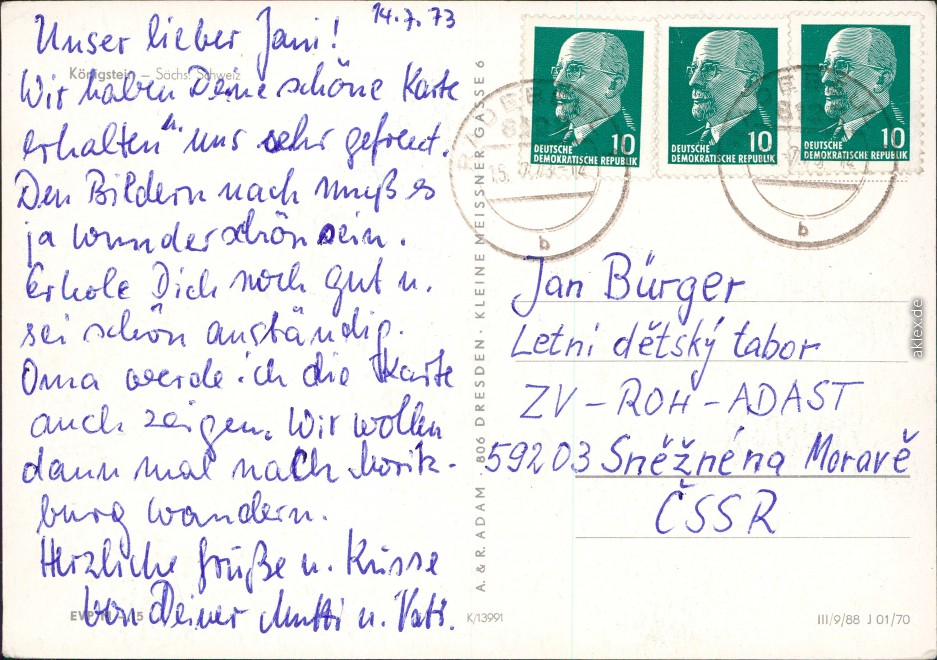 14.7.73
Unser lieber Jani!
Königstein – Sächs. Schweiz
Wir haben Deine schöne Karte
erhalten u. uns sehr gefreut.
Den Bildern nach muß es
ja wunderschön sein.
Erhole Dich noch gut u.
sei schön anständig.
Oma werde ich die Karte
auch zeigen. Wir wollen
dann mal nach Moritz-
burg wandern.
Herzliche Grüße u. Küsse
von Deiner Mutti u. Vati.
A. & R. ADAM · 806 DRESDEN · KLEINE MEISSNER GASSE 6
K/13991
10
DEUTSCHE
DEMOKRATISCHE REPUBLIK
10
DEUTSCHE
DEMOKRATISCHE REPUBLIK
10
DEUTSCHE
DEMOKRATISCHE REPUBLIK
b
b
Jan Bürger
Letni dětský tabor
ZV – ROH – ADAST
59203 Sněžné na Moravě
ČSSR
III/9/88 J 01/70
aklex.de